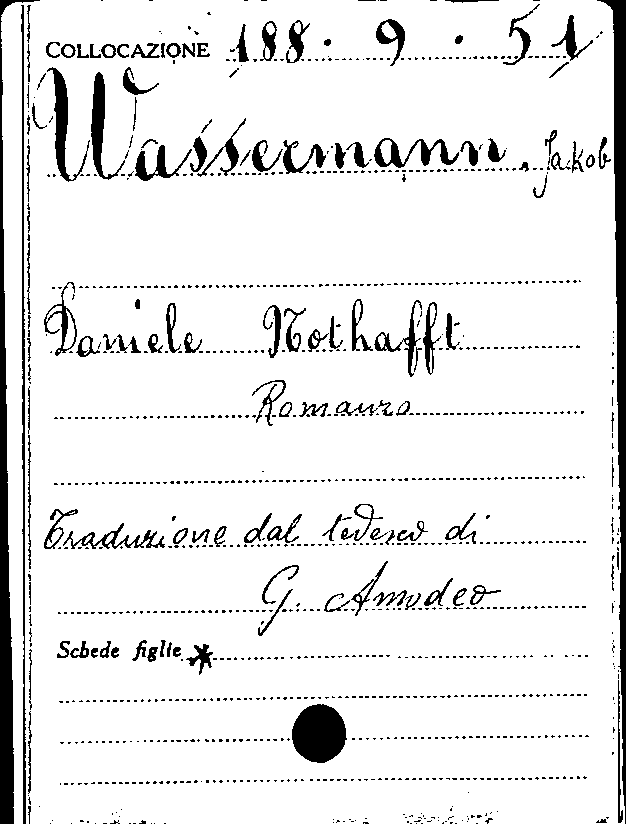 COLLOCAZIONE 188. 9. 51
Wassermann, Jakob
Daniele Nothafft
Romanzo
Traduzione dal tedesco di
G. Amodeo
Schede figlie *